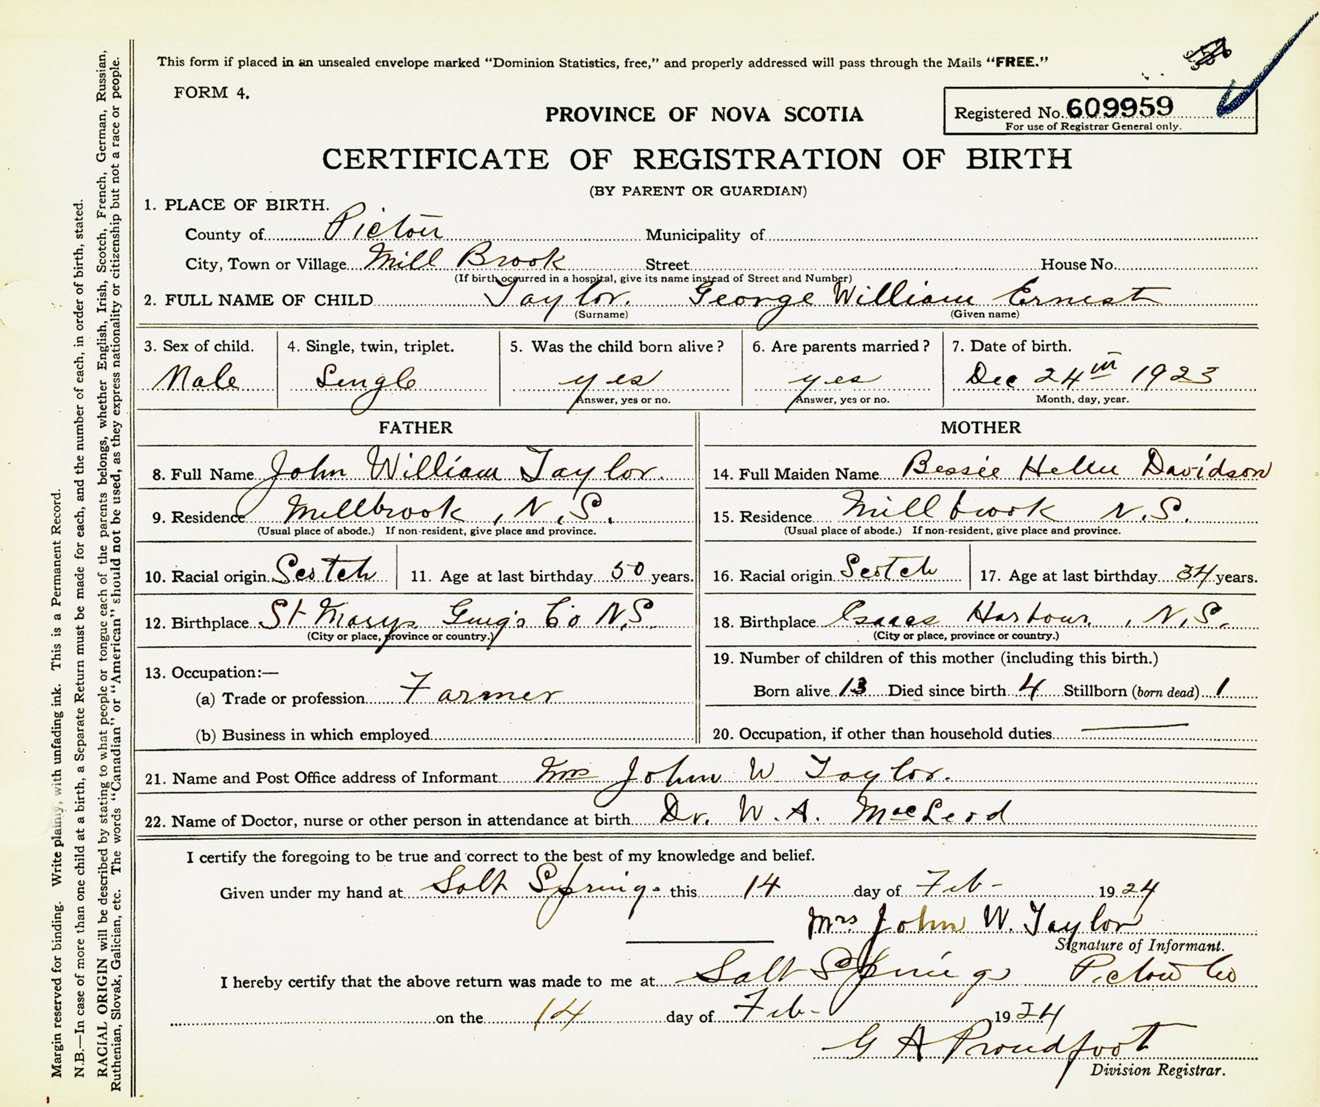 This form if placed in an unsealed envelope marked "Dominion Statistics, free," and properly addressed will pass through the Mails "FREE."
FORM 4.
Registered No. 609959
For use of Registrar General only.
PROVINCE OF NOVA SCOTIA
CERTIFICATE OF REGISTRATION OF BIRTH
(BY PARENT OR GUARDIAN)
1. PLACE OF BIRTH.
County of Pictou Municipality of
City, Town or Village Mill Brook Street House No.
(If birth occurred in a hospital, give its name instead of Street and Number)
2. FULL NAME OF CHILD Taylor. George William Ernest
(Surname) (Given name)
3. Sex of child. 4. Single, twin, triplet. 5. Was the child born alive? 6. Are parents married? 7. Date of birth.
Male Single yes yes Dec 24th 1923
Answer, yes or no. Answer, yes or no. Month, day, year.
FATHER MOTHER
8. Full Name John William Taylor. 14. Full Maiden Name Bessie Davidson
9. Residence Millbrook, N.S. 15. Residence Millbrook N.S.
(Usual place of abode.) If non-resident, give place and province. (Usual place of abode.) If non-resident, give place and province.
10. Racial origin Scotch 11. Age at last birthday 50 years. 16. Racial origin Scotch 17. Age at last birthday 34 years.
12. Birthplace St Marys Co N.S. 18. Birthplace Isaacs Harbour, N.S.
(City or place, province or country.) (City or place, province or country.)
13. Occupation:— 19. Number of children of this mother (including this birth.)
(a) Trade or profession Farmer Born alive 13 Died since birth 4 Stillborn (born dead) 1
(b) Business in which employed 20. Occupation, if other than household duties
21. Name and Post Office address of Informant Mrs John W Taylor.
22. Name of Doctor, nurse or other person in attendance at birth Dr. W. A. MacLeod
I certify the foregoing to be true and correct to the best of my knowledge and belief.
Given under my hand at Salt Springs this 14 day of Feb- 1924
Mrs John W. Taylor
Signature of Informant.
I hereby certify that the above return was made to me at Salt Springs Pictou Co
on the 14 day of Feb- 1924
G A Proudfoot
Division Registrar.
Margin reserved for binding. Write plainly, with unfading ink. This is a Permanent Record.
N.B.—In case of more than one child at a birth, a Separate Return must be made for each, and the number of each, in order of birth, stated.
RACIAL ORIGIN will be described by stating to what people or tongue each of the parents belongs, whether English, Irish, Scotch, French, German, Russian,
Ruthenian, Slovak, Galician, etc. The words "Canadian" or "American" should not be used, as they express nationality or citizenship but not a race or people.